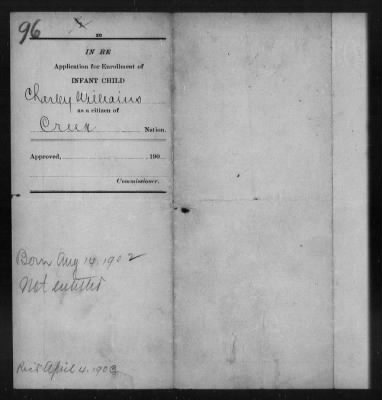 96
IN RE
Application for Enrollment of
INFANT CHILD
Charley Williams
as a citizen of
Creek Nation.
Approved, 190
Commissioner.
Born Aug 14, 1902
Not entitled
Rec'd April 4, 1903